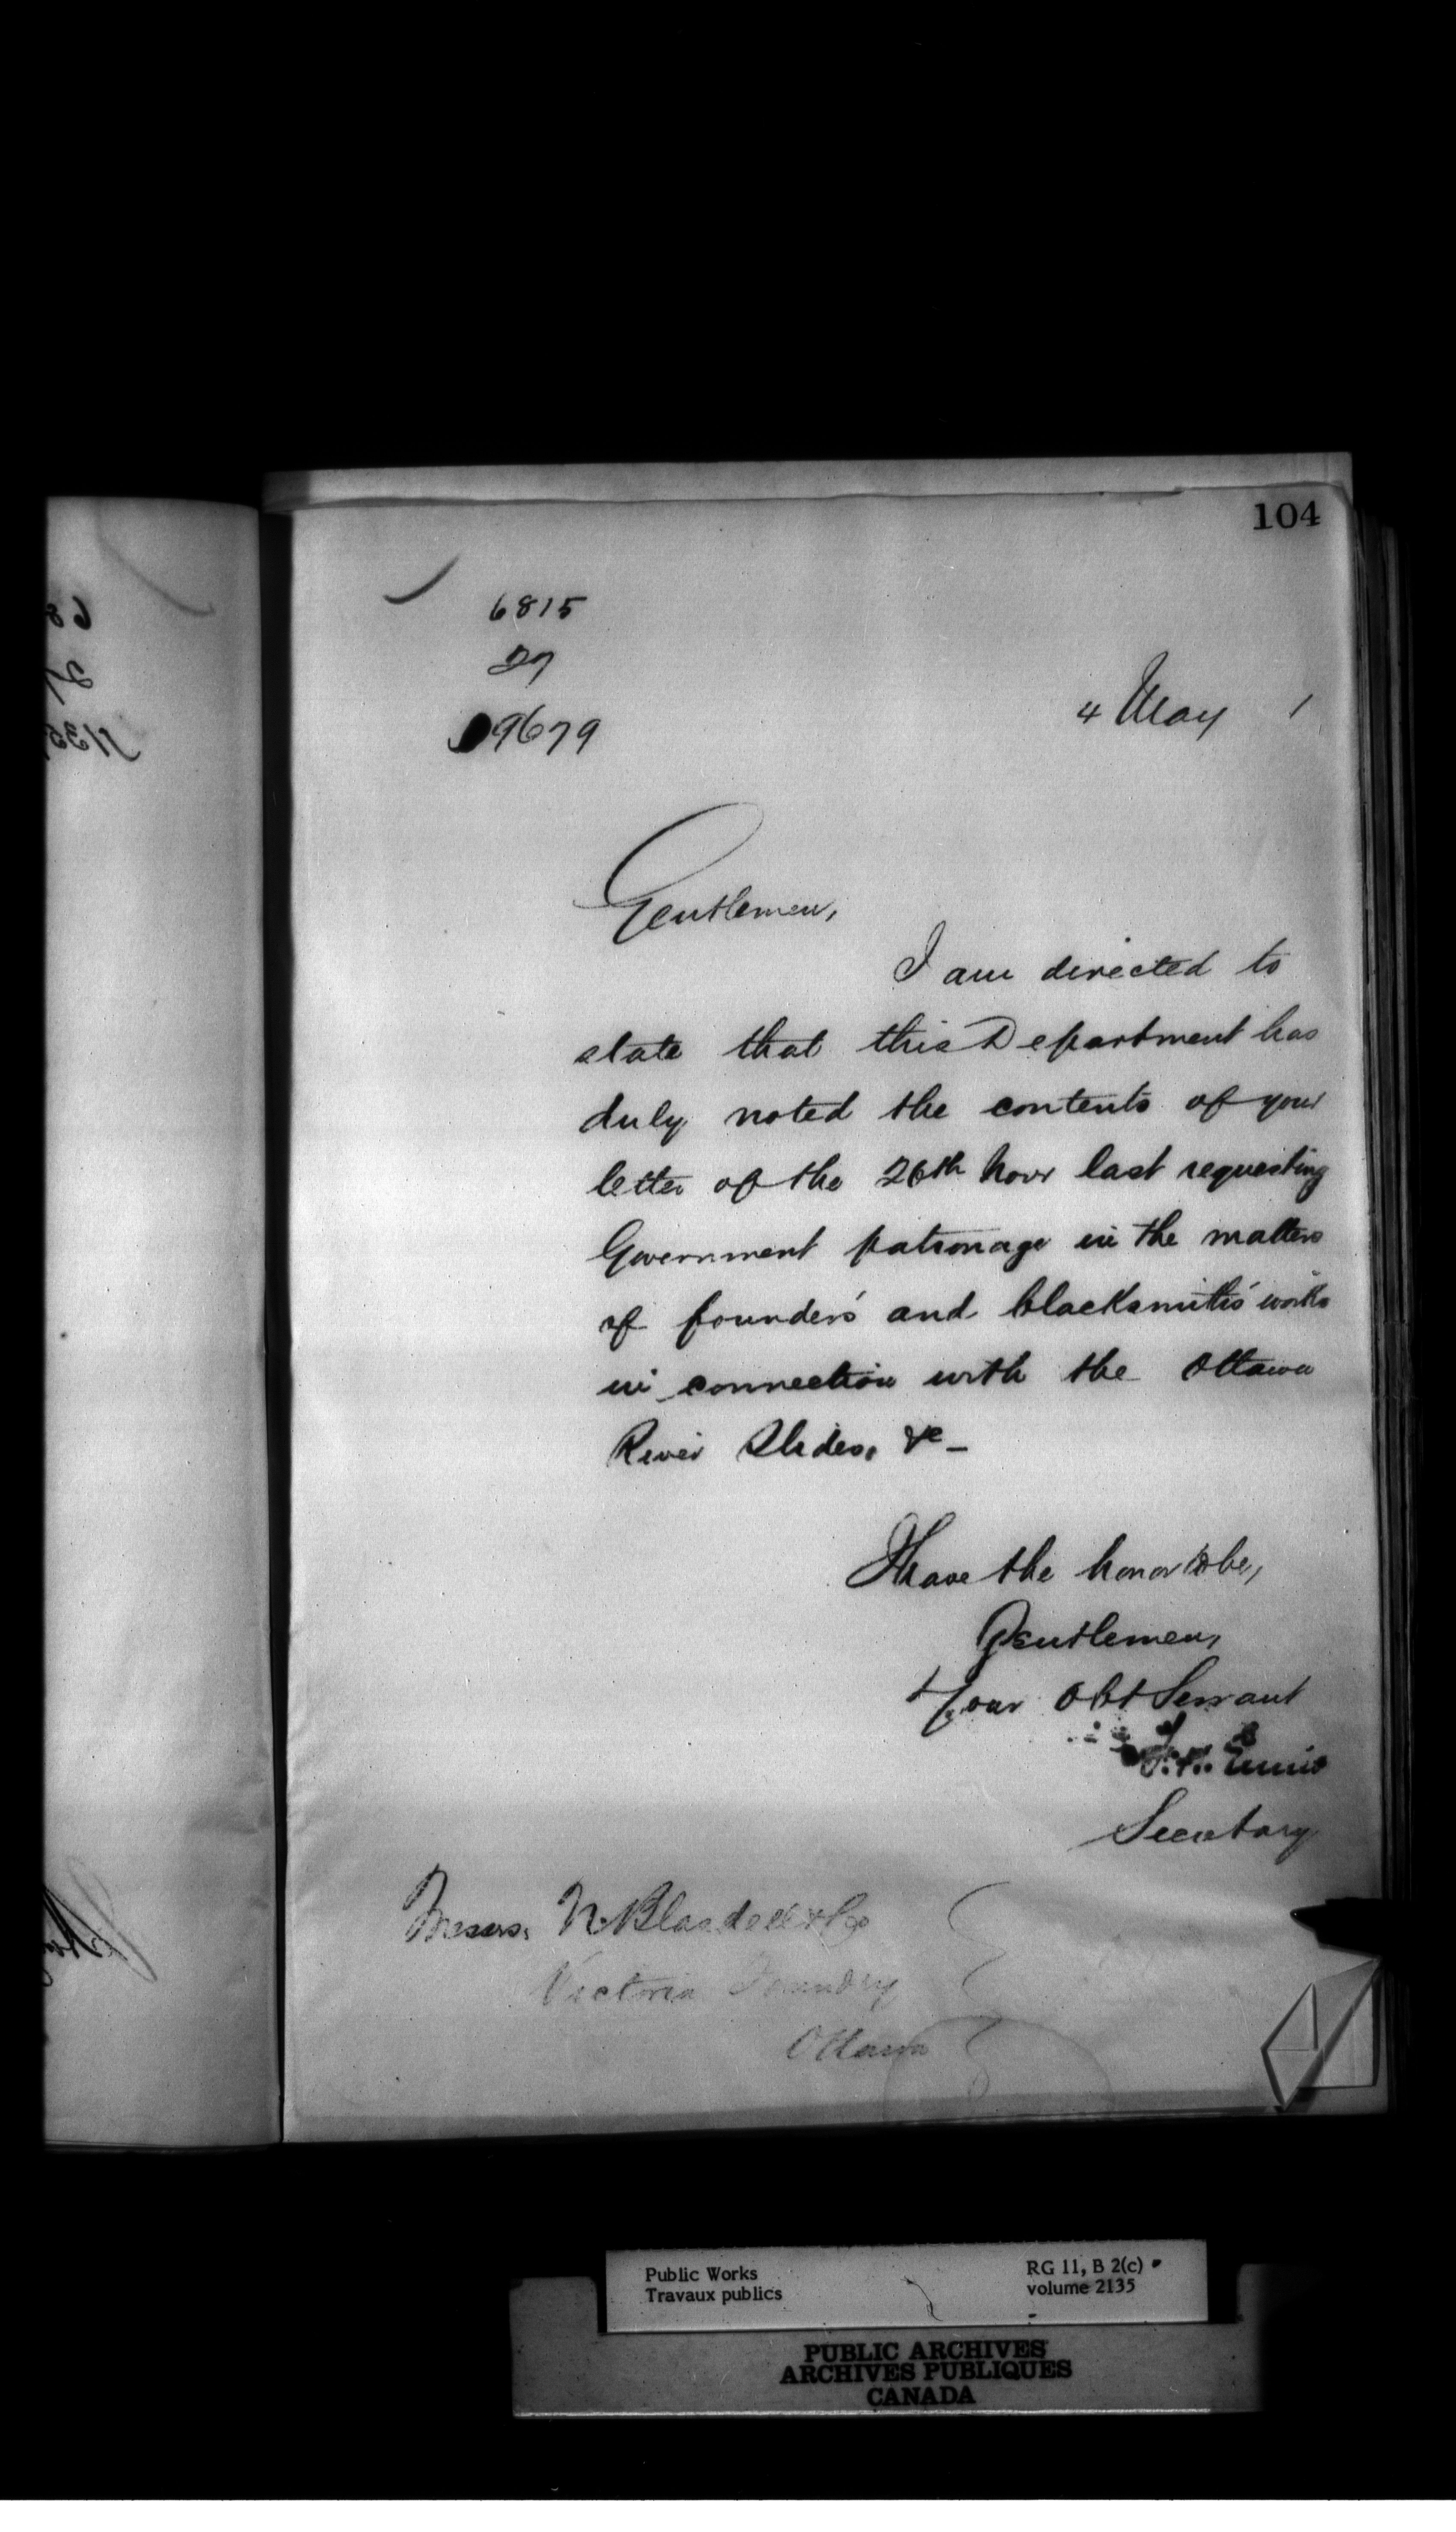 104
6815
27
9679
4 May 1
Gentlemen,
I am directed to
state that this Department has
duly noted the contents of your
letter of the 26th Novr last requesting
Government patronage in the matters
of founders' and blacksmiths' works
in connection with the Ottawa
River Slides, &c –
I have the honor to be,
Gentlemen,
Your Obt Servant
F. H. Ennis
Secretary
Messrs. N. Blasdell & Co
Victoria Foundry
Ottawa
Public Works
Travaux publics
RG 11, B 2(c)
volume 2135
PUBLIC ARCHIVES
ARCHIVES PUBLIQUES
CANADA